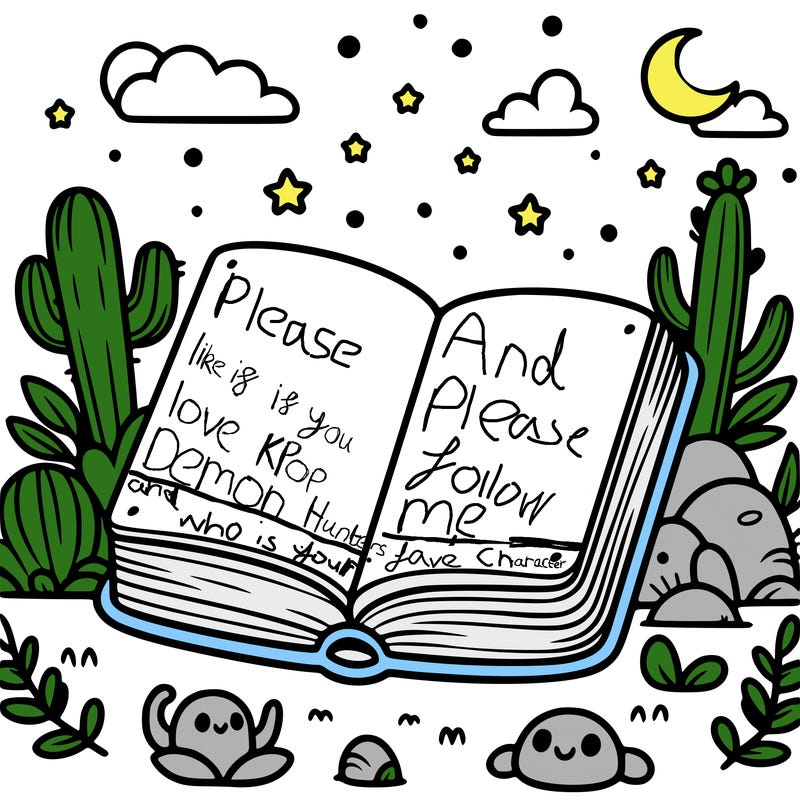 Please
like if if you
love KPop
Demon Hunters
and
who is your
And
Please
follow
me
fave Character